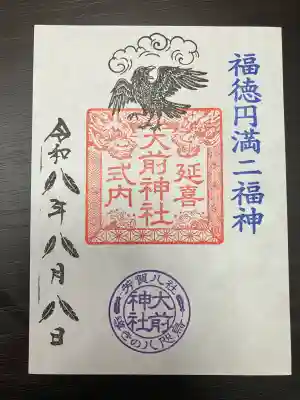 福徳円満二福神
延喜
大前神社
式内
芳賀八社
大前
神社
導きの八咫烏
令和八年八月八日